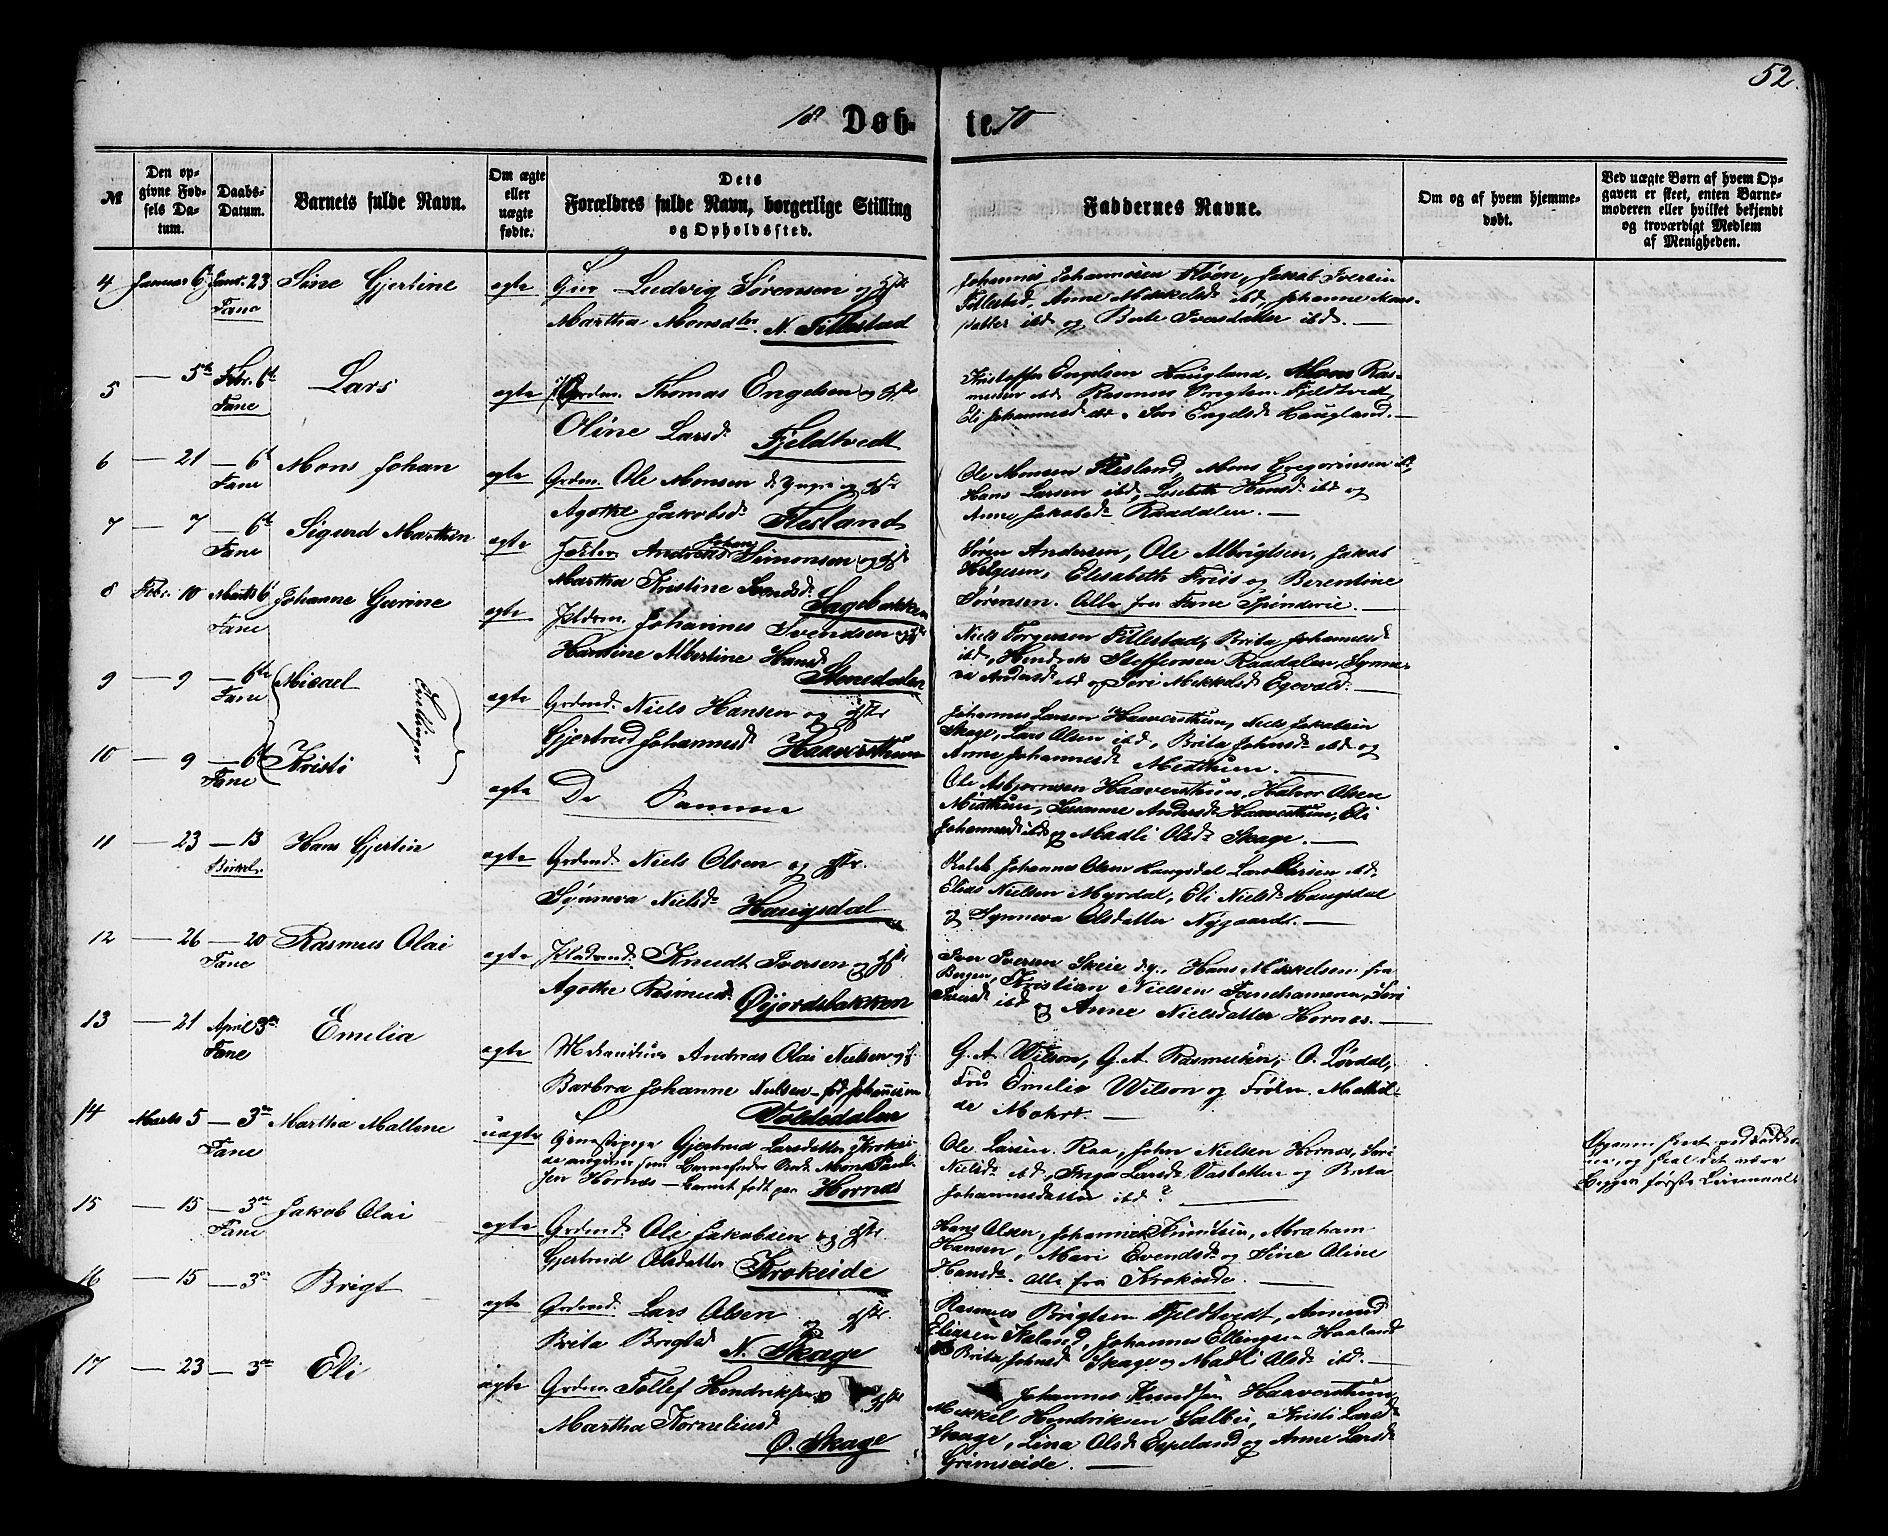 52.
18 Døb- te. 70
№
Den op-
givne Fød-
sels Da-
tum.
Daabs-
Datum.
Barnets fulde Navn.
Om ægte
eller
uægte
fødte.
Dets
Forældres fulde Navn, borgerlige Stilling
og Opholdssted.
Faddernes Navne.
Om og af hvem hjemme-
døbt.
Ved uægte Børn af hvem Op-
gaven er skeet, enten Barne-
moderen eller hvilket bekjendt
og troværdigt Medlem
af Menigheden.
4 Januar 6 Janr. 23 Sine Gjertine ægte Ludvig Sørensen og Hstr
Fane
Martha Monsdtr. N. Titlestad
Johannes Johannesen Fløen, Jakob Iversen
Titlestad, Anne Mikkelsd ibd, Johanne Mons-
datter ibd og Berte Iversdatter ibd.
5 — 5te Febr. 6te Lars ægte Grdm. Thomas Engelsen og Hstr
Fane
Oline Larsd. Fjeldtvedt
Kristoffer Engelsen Haugland, Mons Ras-
musen ibd, Rasmus Brigtsen Fjeldtvedt,
Eli Johannesd ibd. Siri Engelsd Haugland.
6 — 21 — 6te Mons Johan ægte Grdm. Ole Monsen d. Yngre og Hstr
Fane
Agothe Jakobsdr Flesland
Ole Monsen Flesland, Mons Gregoriusen ibd,
Hans Larsen ibd, Lisebeth Hansd ibd og
Anne Jakobsdr Raadalen.
7 — 7 — 6te Sigurd Marthin ægte Andreas Johan Simonsen og Hstr
Fane
Martha Kristine Sagebakken
Søren Andersen, Ole Albrigtsen, Jakob
Helgesen, Elisabeth Friis og Berentine
Sørensen. Alle fra Fane Spinderie.
8 Febr. 10 Marts 6 Johanne Gurine ægte Johannes Svendsen og Hstr
Fane
Hansine Albertine Hansd Stenedalen
Niels Torgersen Titlestad, Brita Johannesd
ibd, Hendrik Steffensen Raadalen, Synne-
ve Andersd ibd og Siri Mikkelsd Egevold.
9 — 9 — 6te Micael Tvillinger ægte Grdmd. Niels Hansen og Hstr
Fane
Gjertrud Johannesd Haaversthun
Johannes Larsen Haaversthun, Niels Jakobsen
Skage, Lars Olsen ibd, Brita Johnsd ibd og
Anne Johannesd Midthun.
10 — 9 — 6te Kristi ægte De Samme
Fane
Ole Asbjørnsen Haaversthun, Halvor Olsen
Midthun, Susanne Andersd Haaversthun, Eli
Johannesd ibd og Madli Olsd Skage.
11 — 23 — 13 Hans Gjertin ægte Grdmd. Niels Olsen og Hstr.
Birkel.
Synneva Nielsdr Haugsdal
Johannes Olsen Haugsdal Lars Larsen ibd
Elias Nielsen Myrdal, Eli Nielsd Haugsdal
og Synneva Olsdatter Nygaard.
12 — 26 — 20 Rasmus Olai ægte Knudt Iversen og Hstr
Fane
Agothe Rasmusd. Øijordsbakken
Iver Iversen Skeie d.y., Hans Mikkelsen fra
Bergen, Kristian Nielsen Fanehameren, Siri
ibd og Anne Nielsdatter Hornæs.
13 — 21 April 3die Emelia ægte Andreas Olai Nielsen og
Fane
Barbra Johanne Nielsen fød Johannesen
Toldedalen
G. A. Wilson, G. A. Rasmusen, O. Lørdal,
Fru Emelia Wilson og Frøken Mathil-
de Mohr.
14 Marts 5 — 3die Martha Mallene uægte Gjertrud Larsdatter Krokei-
Fane
de angiver som Barnefader Mons Paul-
sen Hornæs — Barnet født paa Hornæs
Ole Larsen Raa, John Nielsen Hornæs, Siri
Nielsd ibd, Inga Larsd Vastatten og Brita
Johannesdatter ibd?
og skal det være
Begges første Leiermaal
15 — 15 — 3die Jakob Olai ægte Grdmd. Ole Jakobsen og Hstr
Fane
Gjertrud Olsdatter Krokeide
Hans Olsen, Johannes Knudsen, Abraham
Hansen, Mari Evendsd og Sine Oline
Hansdr. alle fra Krokeide.
16 — 15 — 3die Brigt ægte Grdmd. Lars Olsen og Hstr.
Brita Brigtsd N. Skage
Rasmus Brigtsen Fjeldtvedt, Amund
Eliasen Kaland, Johannes Ellingsen Haaland
Brita Johnsd Skage og Madli Olsd ibd.
17 — 23 — 3die Eli ægte Grdm. Tollef Hendriksen Hstr
Martha Korneliusd. Ø. Skage
Johannes Knudsen Haaversthun
Mikkel Hendriksen Salbu, Kristi Larsd
Skage, Lina Olsd Espeland og Anne Larsd
Grimseide.